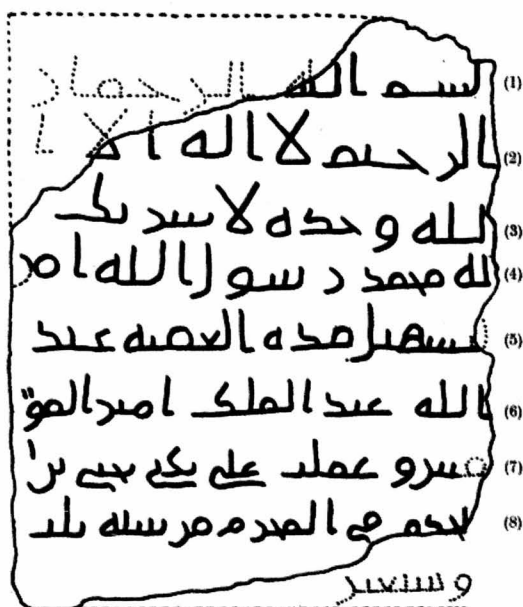 (1) بسم الله الرحمن
(2) الرحيم لا اله الا ا
(3) لله وحده لا شريك
(4) له محمد رسول الله امر
(5) بتسهيل هذه العقبه عبد
(6) الله عبد الملك امير المؤ
(7) منين وعملت على يدي يحيى بن ا
(8) لحكم في المحرم من سنه ثلث
وسبعين